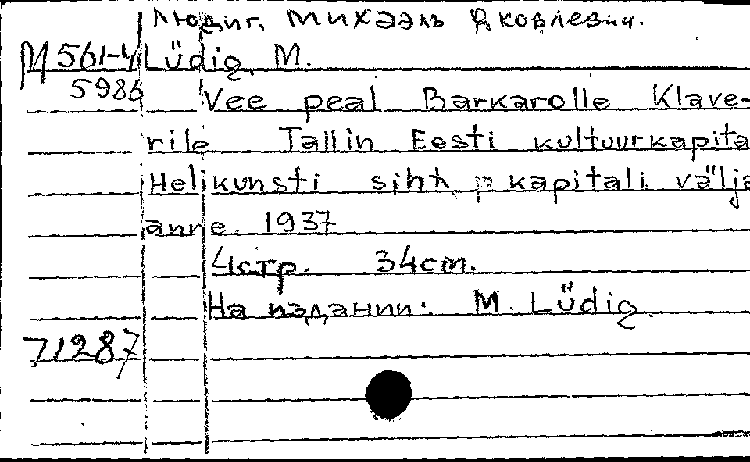 Людиг, Михаэль Яковлевич.
М 561-4 Lüdig, M.
5986 Vee peal Barkarolle Klave-
rile Tallin Eesti kultuurkapita
Helikunsti siht kapitali välja
anne. 1937
4стр. 34cm.
На издании: M. Lüdig.
71287